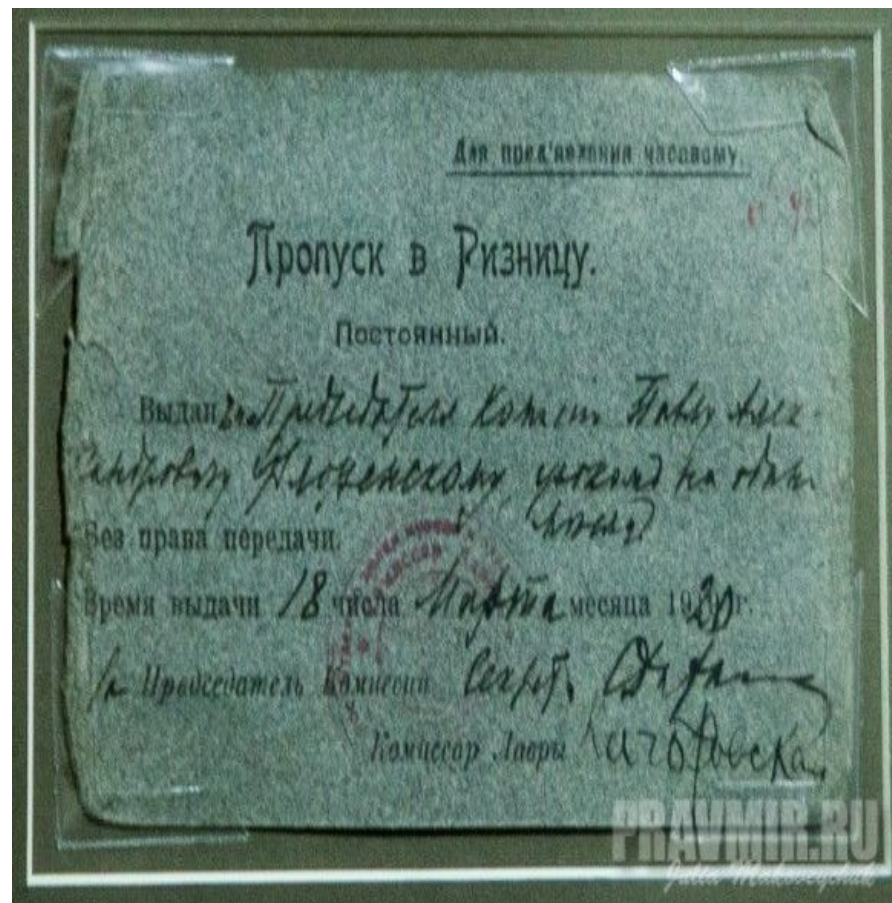 Для пред'явления часовому.
Пропуск в Ризницу.
Постоянный.
Выдан Зам. Председателя Комисс. Павлу Алек-
сандровичу Флоренскому, сроком на один
месяц
Без права передачи.
Время выдачи 18 числа Марта месяца 1920 г.
Председатель Комиссии Секрет.
Комиссар Лавры
PRAVMIR.RU